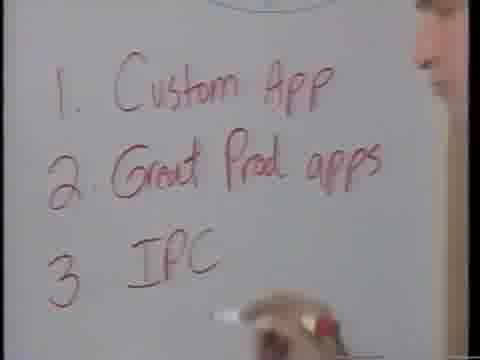 1. Custom App
2. Great Prod apps
3. IPC